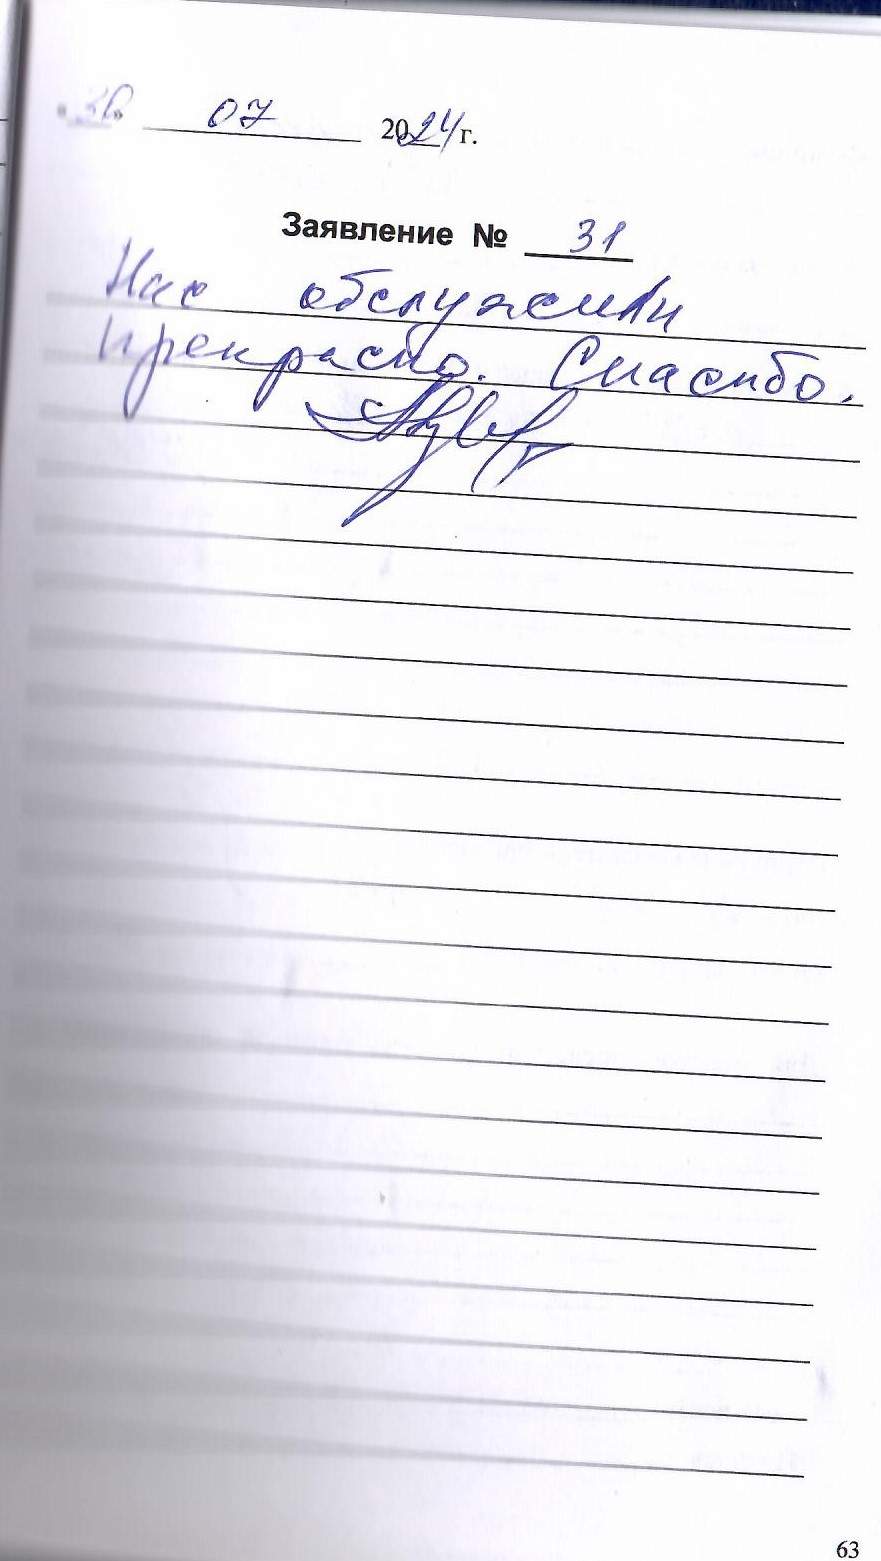 30 07 2024 г.
Заявление № 31
Нас обслужили
прекрасно. Спасибо.
63